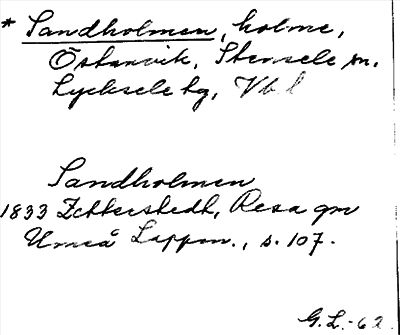 * Sandholmen, holme,
Östanvik, Stensele sn.
Lycksele tg, Vbl
Sandholmen
1833 Zetterstedt, Resa gm
Umeå Lappm., s. 107.
G. L. -62.